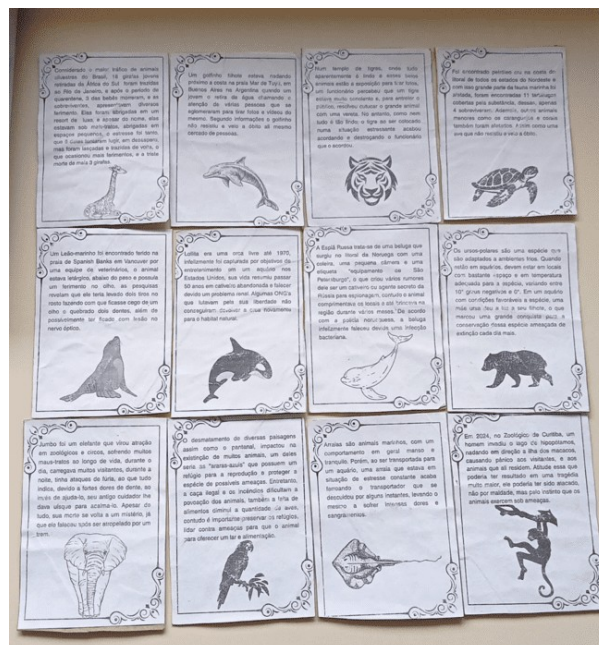 Considerado o maior tráfico de animais
silvestres do Brasil, 18 girafas jovens
retiradas da África do Sul foram trazidas
ao Rio de Janeiro, e após o período de
quarentena, 3 delas morreram, e as
sobreviventes, apresentavam diversos
ferimentos. Elas foram abrigadas em um
resort de luxo, e apesar do nome, elas
estavam sob maus-tratos, abrigadas em
espaços pequenos, o estresse foi tanto,
que 3 delas tentaram fugir, em desespero,
mas foram laçadas e trazidas de volta, o
que ocasionou mais ferimentos, e a triste
morte de mais 3 girafas.
Um golfinho filhote estava nadando
próximo a costa na praia Mar de Tuyú, em
Buenos Aires na Argentina quando um
jovem o retira da água chamando a
atenção de várias pessoas que se
aglomeraram para tirar fotos e vídeos do
mesmo. Segundo informações o golfinho
não resistiu e veio a óbito ali mesmo
cercado de pessoas.
Num templo de tigres, onde tudo
aparentemente é lindo e esses belos
animais estão a exposição para tirar fotos,
um funcionário percebeu que um tigre
estava muito sonolento e, para entreter o
público, resolveu cutucar o grande animal
com uma vareta. No entanto, como nem
tudo é tão lindo, o tigre ao ser colocado
numa situação estressante acabou
acordando e destroçando o funcionário
que o acordou.
Foi encontrado petróleo cru na costa do
litoral de todos os estados do Nordeste e
com isso grande parte da fauna marinha foi
afetada, foram encontradas 11 tartarugas
cobertas pela substância, dessas, apenas
6 sobreviveram. Ademais, outros animais
menores como os caranguejos e corais
também foram afetados, assim como uma
ave que não resistiu e veio a óbito.
Um Leão-marinho foi encontrado ferido na
praia de Spanish Banks em Vancouver por
uma equipe de veterinários, o animal
estava letárgico, abaixo do peso e possuía
um ferimento no olho, as pesquisas
revelam que ele teria levado dois tiros no
rosto fazendo com que ficasse cego de um
olho e quebrado dois dentes, além de
possivelmente ter ficado com lesão no
nervo óptico.
Lolita era uma orca livre até 1970,
infelizmente foi capturada por objetivos de
entretenimento em um aquário nos
Estados Unidos, sua vida resumiu passar
50 anos em cativeiro abandonada e falecer
devido um problema renal. Algumas ONG's
que lutavam pela sua liberdade não
conseguiram devolver a orca novamente
para o habitat natural.
A Espiã Russa trata-se de uma baluga que
surgiu no litoral da Noruega com uma
coleira, uma pequena câmera e uma
etiqueta "equipamento de São
Petersburgo", o que criou vários rumores
dele ser um cativeiro ou agente secreto da
Rússia para espionagem, contudo o animal
cumprimentava os locais e até
região durante vários meses. De acordo
com a polícia norueguesa, a baluga
infelizmente faleceu devido uma infecção
bacteriana.
Os ursos-polares são uma espécie que
são adaptados a ambientes frios. Quando
estão em aquários, devem estar em locais
com bastante espaço e em temperatura
adequada para a espécie, variando entre
10° graus negativos a 0°. Em um aquário
com condições favoráveis a espécie, uma
mãe ursa deu a luz a seu filhote, o que
marcou uma grande conquista para a
conservação dessa espécie ameaçada de
extinção cada dia mais.
Jumbo foi um elefante que virou atração
em zoológicos e circos, sofrendo muitos
maus-tratos ao longo da vida, durante o
dia, carregava muitos visitantes, durante a
noite, tinha ataques de fúria, ao que tudo
indica, devido a fortes dores de dente, ao
invés de ajudá-lo, seu antigo cuidador lhe
dava uísque para acalma-lo. Apesar de
tudo, sua morte se volta a um mistério, já
que ele faleceu após ser atropelado por um
trem.
O desmatamento de diversas paisagens
assim como o pantanal, impactou na
existência de muitos animais, um deles
seria as "araras-azuis" que possuem um
refúgio para a reprodução e proteger a
espécie de possíveis ameaças. Entretanto,
a caça ilegal e os incêndios dificultam a
povoação dos animais, também a falta de
alimentos diminui a quantidade de aves,
contudo é importante preservar os refúgios,
lidar contra ameaças para que o animal
para oferecer um lar e alimentação.
Arraias são animais marinhos, com um
comportamento em geral manso e
tranquilo. Porém, ao ser transportada para
um aquário, uma arraia que estava em
situação de estresse constante acaba
ferroando o transportador que se
descuidou por alguns instantes, levando o
mesmo a sofrer intensas dores e
sangramentos.
Em 2024, no Zoológico de Curitiba, um
homem invadiu o lago de hipopótamos,
nadando em direção a ilha dos macacos,
causando pânico aos visitantes, e aos
animais que ali residem. Atitude esse que
poderia ter resultado em uma tragédia
muito maior, ele poderia ter sido atacado,
não por maldade, mas pelo instinto que os
animais exercem sob ameaças.